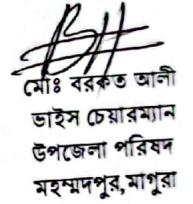 মোঃ বরকত আলী
ভাইস চেয়ারম্যান
উপজেলা পরিষদ
মহম্মদপুর, মাগুরা